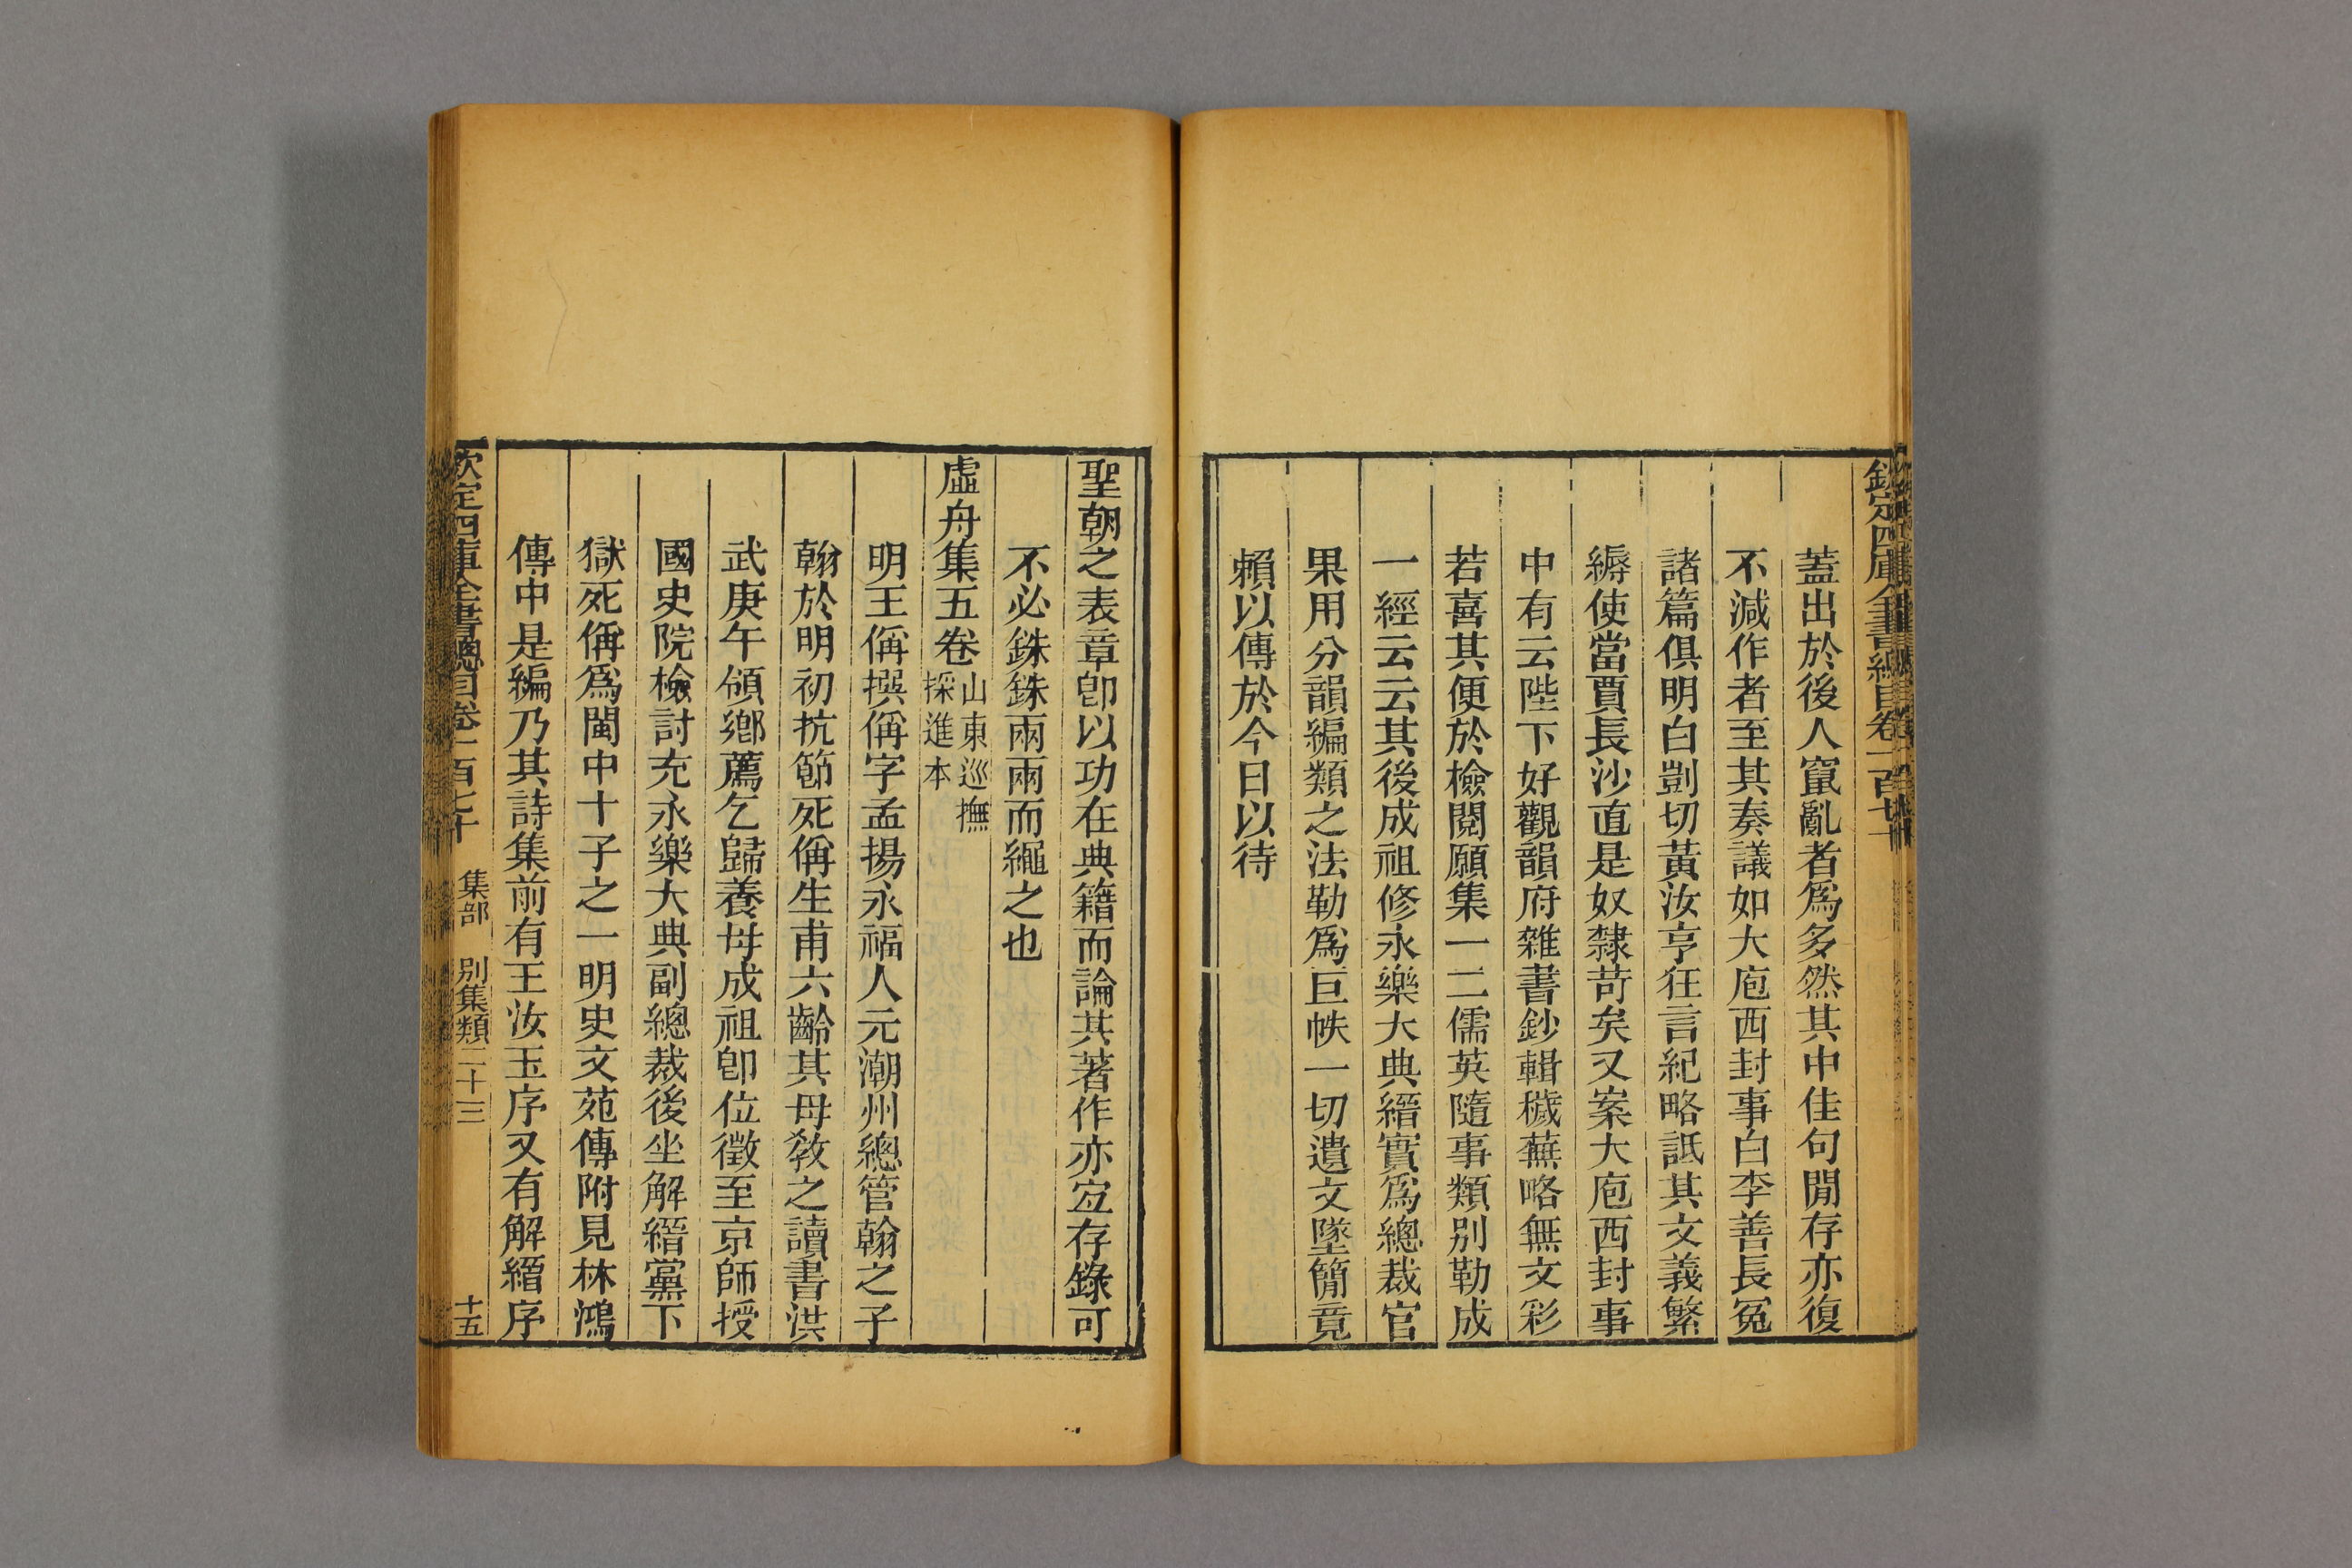 欽定四庫全書總目卷一百七十
蓋出於後人竄亂者爲多然其中佳句閒存亦復
不減作者至其奏議如大庖西封事白李善長冤
諸篇俱明白剴切黃汝亨狂言紀略詆其文義繁
縟使當賈長沙直是奴隸苛矣又案大庖西封事
中有云陛下好觀韻府雜書鈔輯穢蕪略無文彩
若喜其便於檢閱願集一二儒英隨事類別勒成
一經云云其後成祖修永樂大典縉實爲總裁官
果用分韻編類之法勒爲巨帙一切遺文墜簡竟
賴以傳於今日以待
聖朝之表章卽以功在典籍而論其著作亦宐存錄可
不必銖銖兩兩而繩之也
虛舟集五卷山東巡撫
採進本
明王偁撰偁字孟揚永福人元潮州總管翰之子
翰於明初抗節死偁生甫六齡其母敎之讀書洪
武庚午領鄕薦乞歸養母成祖卽位徵至京師授
國史院檢討充永樂大典副總裁後坐解縉黨下
獄死偁爲閩中十子之一明史文苑傳附見林鴻
傳中是編乃其詩集前有王汝玉序又有解縉序
欽定四庫全書總目卷一百七十 集部 別集類二十三 十五